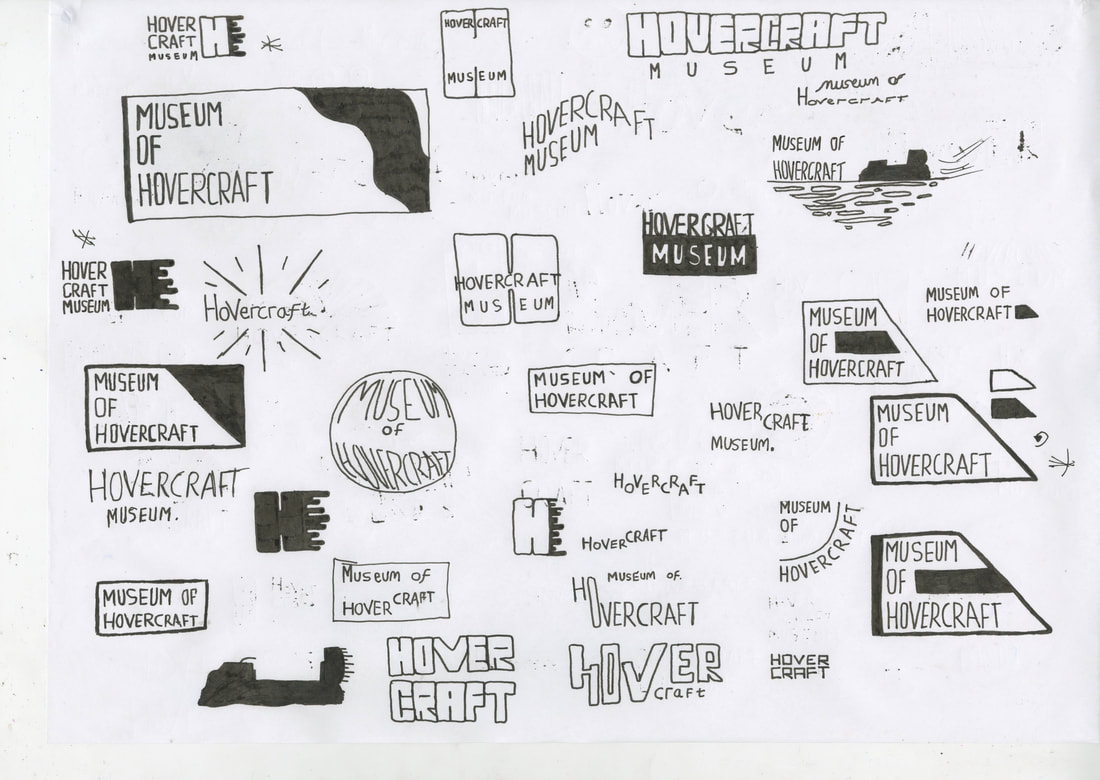 HOVER
CRAFT
MUSEUM
H
HOVER CRAFT
MUSEUM
HOVERCRAFT
MUSEUM
museum of
Hovercraft
MUSEUM
OF
HOVERCRAFT
HOVERCRAFT
MUSEUM
MUSEUM OF
HOVERCRAFT
HOVERCRAFT
MUSEUM
HOVER
CRAFT
MUSEUM
H
Hovercraft
HOVERCRAFT
MUSEUM
MUSEUM OF
HOVERCRAFT
MUSEUM
OF
HOVERCRAFT
MUSEUM
OF
HOVERCRAFT
MUSEUM
OF
HOVERCRAFT
MUSEUM OF
HOVERCRAFT
HOVERCRAFT
MUSEUM.
MUSEUM
OF
HOVERCRAFT
HOVERCRAFT
MUSEUM.
H
HOVERCRAFT
H
HOVERCRAFT
MUSEUM
OF
HOVERCRAFT
MUSEUM
OF
HOVERCRAFT
MUSEUM OF
HOVERCRAFT
MUSEUM OF
HOVERCRAFT
MUSEUM OF.
HOVERCRAFT
HOVER
CRAFT
HOVER
craft
HOVER
CRAFT